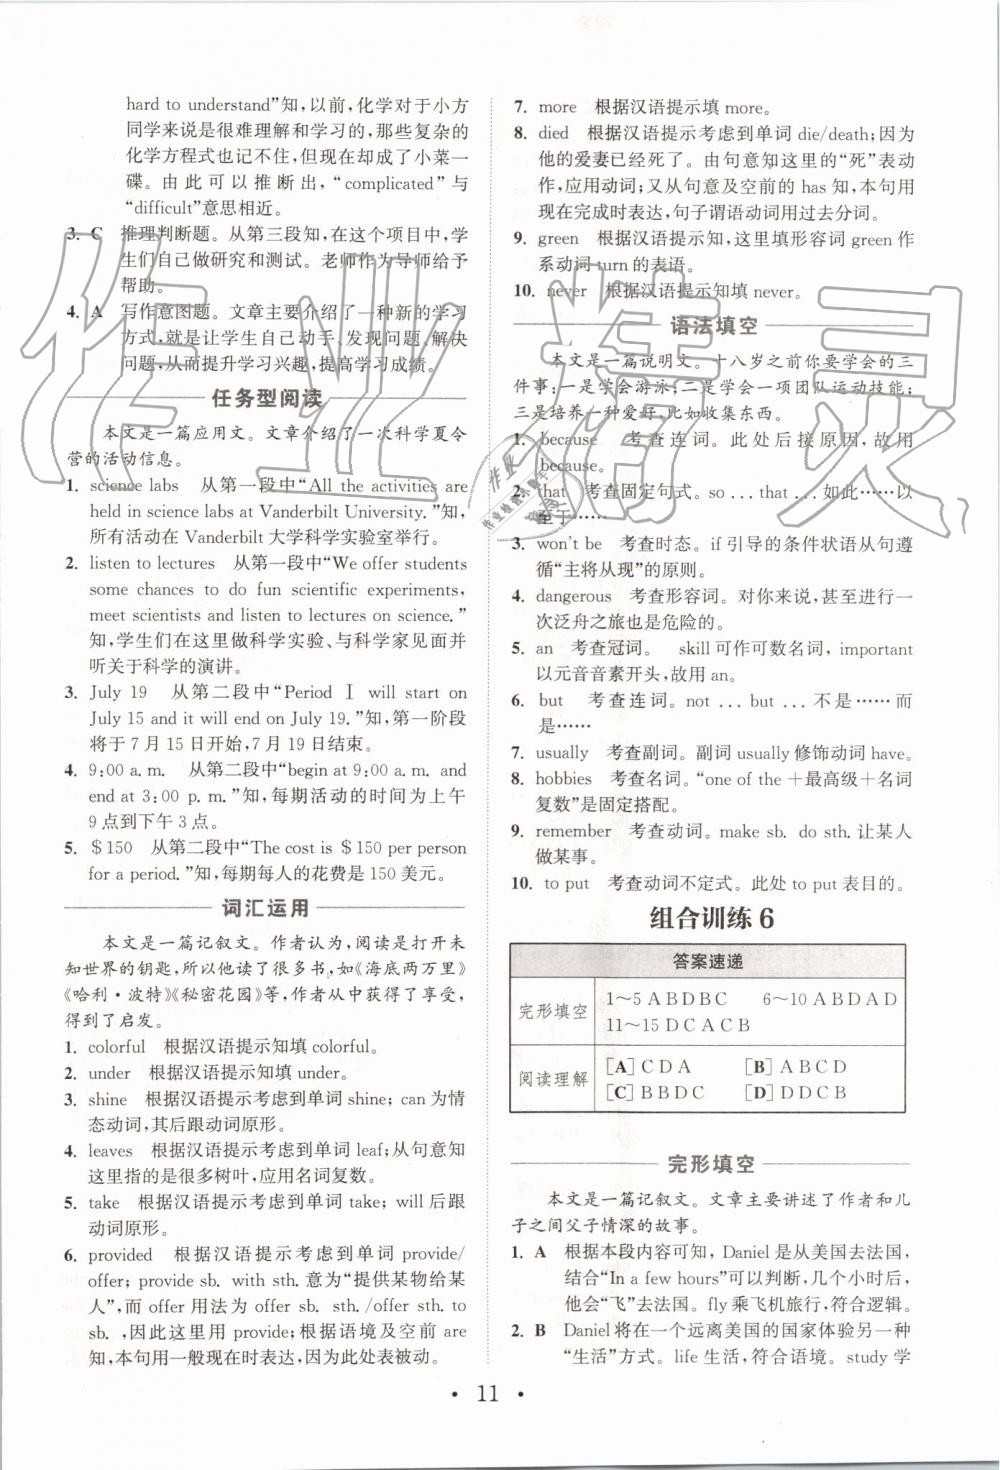 hard to understand”知,以前,化学对于小方
同学来说是很难理解和学习的,那些复杂的
化学方程式也记不住,但现在却成了小菜一
碟。由此可以推断出,“complicated”与
“difficult”意思相近。
3. C 推理判断题。从第三段知,在这个项目中,学
生们自己做研究和测试。老师作为导师给予
帮助。
4. A 写作意图题。文章主要介绍了一种新的学习
方式,就是让学生自己动手、发现问题、解决
问题,从而提升学习兴趣,提高学习成绩。
任务型阅读
本文是一篇应用文。文章介绍了一次科学夏令
营的活动信息。
1. science labs 从第一段中“All the activities are
held in science labs at Vanderbilt University.”知,
所有活动在 Vanderbilt 大学科学实验室举行。
2. listen to lectures 从第一段中“We offer students
some chances to do fun scientific experiments,
meet scientists and listen to lectures on science.”
知,学生们在这里做科学实验、与科学家见面并
听关于科学的演讲。
3. July 19 从第二段中“Period Ⅰ will start on
July 15 and it will end on July 19.”知,第一阶段
将于 7 月 15 日开始,7 月 19 日结束。
4. 9:00 a. m. 从第二段中“begin at 9:00 a. m. and
end at 3:00 p. m.”知,每期活动的时间为上午
9 点到下午 3 点。
5. $150 从第二段中“The cost is $150 per person
for a period.”知,每期每人的花费是 150 美元。
词汇运用
本文是一篇记叙文。作者认为,阅读是打开未
知世界的钥匙,所以他读了很多书,如《海底两万里》
《哈利·波特》《秘密花园》等,作者从中获得了享受,
得到了启发。
1. colorful 根据汉语提示知填 colorful。
2. under 根据汉语提示知填 under。
3. shine 根据汉语提示考虑到单词 shine; can 为情
态动词,其后跟动词原形。
4. leaves 根据汉语提示考虑到单词 leaf;从句意知
这里指的是很多树叶,应用名词复数。
5. take 根据汉语提示考虑到单词 take; will 后跟
动词原形。
6. provided 根据汉语提示考虑到单词 provide/
offer; provide sb. with sth. 意为“提供某物给某
人”,而 offer 用法为 offer sb. sth. /offer sth. to
sb. ,因此这里用 provide;根据语境及空前 are
知,本句用一般现在时表达,因为此处表被动。
7. more 根据汉语提示填 more。
8. died 根据汉语提示考虑到单词 die/death;因为
他的爱妻已经死了。由句意知这里的“死”表动
作,应用动词;又从句意及空前的 has 知,本句用
现在完成时表达,句子谓语动词用过去分词。
9. green 根据汉语提示知,这里填形容词 green 作
系动词 turn 的表语。
10. never 根据汉语提示知填 never。
语法填空
本文是一篇说明文。十八岁之前你要学会的三
件事:一是学会游泳;二是学会一项团队运动技能;
三是培养一种爱好,比如收集东西。
1. because 考查连词。此处后接原因,故用
because。
2. that 考查固定句式。so ... that ... 如此……以
至于……
3. won't be 考查时态。if 引导的条件状语从句遵
循“主将从现”的原则。
4. dangerous 考查形容词。对你来说,甚至进行一
次泛舟之旅也是危险的。
5. an 考查冠词。 skill 可作可数名词, important
以元音音素开头,故用 an。
6. but 考查连词。not ... but ... 不是……而
是……
7. usually 考查副词。副词 usually 修饰动词 have。
8. hobbies 考查名词。“one of the +最高级+名词
复数”是固定搭配。
9. remember 考查动词。make sb. do sth. 让某人
做某事。
10. to put 考查动词不定式。此处 to put 表目的。
组合训练 6
答案速递
完形填空 1~5 A B D B C 6~10 A B D A D
11~15 D C A C B
阅读理解 [A] C D A [B] A B C D
[C] B B D C [D] D D B A
完形填空
本文是一篇记叙文。文章主要讲述了作者和儿
子之间父子情深的故事。
1. A 根据本段内容可知,Daniel 是从美国去法国,
结合“In a few hours”可以判断,几个小时后,
他会“飞”去法国。fly 乘飞机旅行,符合逻辑。
2. B Daniel 将在一个远离美国的国家体验另一种
“生活”方式。life 生活,符合语境。study 学
· 11 ·
作业精灵
作业